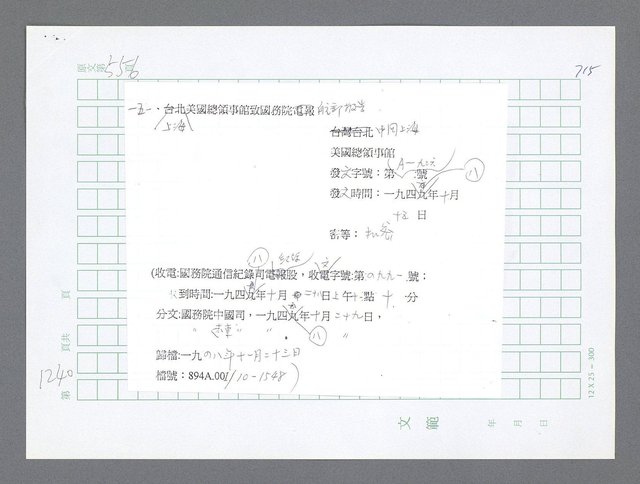 原文第556頁
715
一五一、台北美國總領事館致國務院電報 航郵報告
上海
台灣台北 中國上海
美國總領事館
A-一九二六
發文字號：第 號
八
發文時間：一九四九年十月
十五日
密等：機密
八 紀錄 文
(收電:國務院通信紀錄司電報股，收電字號:第四九九一號：
收到時間:一九四九年十月二十八日上午十二點十分
分文:國務院中國司，一九四九年十月二十九日，
〃 遠東〃 〃
八
歸檔:一九四八年十一月二十三日
檔號：894A.00/(10-1548)
第1240頁共 頁
文範
年 月 日
12 X 25 - 300